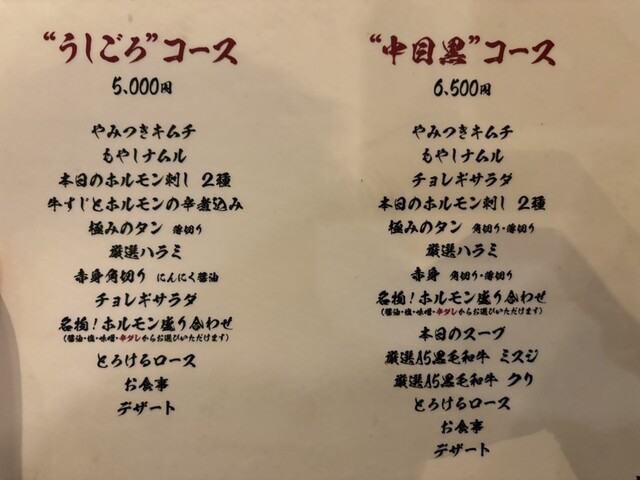 “うしごろ”コース
5,000円
やみつきキムチ
もやしナムル
本日のホルモン刺し 2種
牛すじとホルモンの辛煮込み
極みのタン 薄切り
厳選ハラミ
赤身角切り にんにく醤油
チョレギサラダ
名物！ホルモン盛り合わせ
（醤油・塩・味噌・辛ダレからお選びいただけます）
とろけるロース
お食事
デザート
“中目黒”コース
6,500円
やみつきキムチ
もやしナムル
チョレギサラダ
本日のホルモン刺し 2種
極みのタン 角切り・薄切り
厳選ハラミ
赤身 角切り・薄切り
名物！ホルモン盛り合わせ
（醤油・塩・味噌・辛ダレからお選びいただけます）
本日のスープ
厳選A5黒毛和牛 ミスジ
厳選A5黒毛和牛 クリ
とろけるロース
お食事
デザート